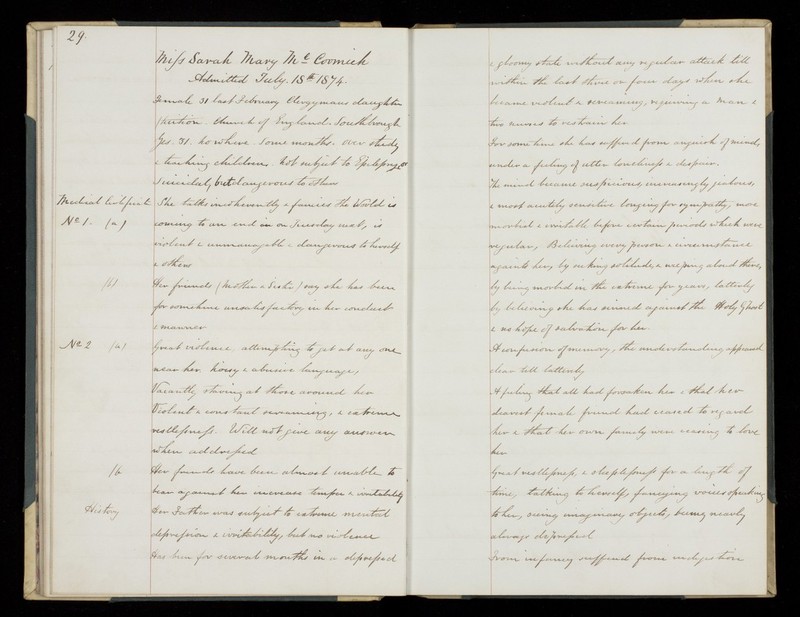 29.
Miss Sarah Mary McCormick
Admitted July. 18th 1874.
Female 31 last February Clergymans daughter
Church of England. Southborough
Yes. 31. no where. some months. over study
& teaching children. not subject to Epilepsy, or
Suicidal, but dangerous to others
Medical Certificate
She talks incoherently & fancies the World is
No 1. (a)
coming to an end in on Tuesday next, is
violent & unmanageable & dangerous to herself
& others
(b)
Her friends (Mother & Sister) say she has been
for sometime unsatisfactory in her conduct
& manner
No 2 (a)
Great violence, attempting to get at any one
near her. noisy & abusive language,
Vacantly staring at those around her
Violent & constant screaming, & extreme
restlessness. Will not give any answer
when addressed
/b
Her friends have been almost unable to
bear against her increased temper & irritability
History
Her Father was subject to extreme mental
depression & irritability, but no violence
Has been for several months in a depressed
& gloomy state without any regular attack till
within the last three or four days when she
became violent & screaming, requiring a man &
two nurses to restrain her
For some time she has suffered from anguish of mind,
under a feeling of utter loneliness & despair.
The mind became suspicious, increasingly jealous,
& most acutely sensitive longing for sympathy, more
morbid & irritable before certain periods which were
regular, Believing every person & circumstance
against her, by seeking solitude, & weeping aloud there,
by being morbid in the extreme for years, latterly
by believing she has sinned against the Holy Ghost
& no hope of salvation for her.
A confusion of memory, the understanding appeared
clear till latterly
A feeling that all had forsaken her & that her
dearest female friend had ceased to regard
her & that her own family were ceasing to love
her
Great restlessness, & sleeplessness for a length of
time, talking to herself, fancying voices speaking
to her, seeing imaginary objects, being nearly
always depressed
From infancy suffered from indigestion